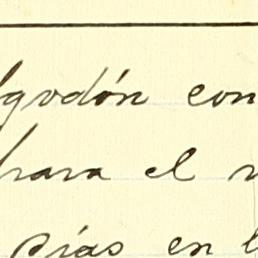 lgodón con
para el
días en l